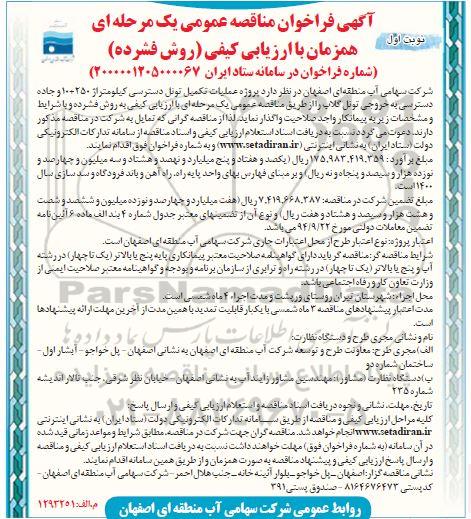 آگهی فراخوان مناقصه عمومی یک مرحله ای
همزمان با ارزیابی کیفی (روش فشرده)
(شماره فراخوان در سامانه ستاد ایران ۲۰۰۰۰۰۱۲۰۵۰۰۰۰۶۷)
نوبت اول
شرکت سهامی آب منطقه ای اصفهان در نظر دارد پروژه عملیات تکمیل تونل دسترسی کیلومتراژ ۲۵۰+۱۰ و جاده
دسترسی به خروجی تونل گلاب را از طریق مناقصه عمومی یک مرحله ای با ارزیابی کیفی به روش فشرده و با شرایط
و مشخصات زیر به پیمانکار واجد صلاحیت واگذار نماید. لذا از مناقصه گرانی که تمایل به شرکت در مناقصه مذکور
دارند، دعوت می گردد نسبت به دریافت اسناد استعلام ارزیابی کیفی و اسناد مناقصه از سامانه تدارکات الکترونیکی
دولت (ستاد ایران) به نشانی اینترنتی (www.setadiran.ir) و به شماره فراخوان فوق اقدام نمایند.
مبلغ برآورد: ۱۷۵,۹۸۳,۴۱۹,۳۵۹ ریال (یکصد و هفتاد و پنج میلیارد و نهصد و هشتاد و سه میلیون و چهارصد و
نوزده هزار و سیصد و پنجاه و نه ریال) و بر مبنای فهارس بهای واحد پایه راه، راه آهن و باند فرودگاه و سد سازی سال
۱۴۰۰ است.
مبلغ تضمین شرکت در مناقصه: ۷,۴۱۹,۶۶۸,۳۸۷ ریال (هفت میلیارد و چهارصد و نوزده میلیون و ششصد و شصت
و هشت هزار و سیصد و هشتاد و هفت ریال) و نوع آن از تضمینهای معتبر جدول شماره ۴ بند الف ماده ۶ آئین نامه
تضمین معاملات دولتی مورخ ۹۴/۹/۲۲ می باشد.
اعتبار پروژه: نوع اعتبار طرح از محل اعتبارات جاری شرکت سهامی آب منطقه ای اصفهان است.
شرایط مناقصه گر: مناقصه گر باید دارای گواهینامه صلاحیت معتبر پیمانکاری پایه پنج یا بالاتر (یک تا چهار) در رشته
آب و پنج یا بالاتر (یک تا چهار) در رشته راه و ترابری از سازمان برنامه و بودجه و گواهینامه معتبر صلاحیت ایمنی از
وزارت تعاون کار و رفاه اجتماعی باشد.
محل اجرا: شهرستان تیران روستای ورپشت و مدت اجرا، ۴ ماه شمسی است.
مدت اعتبار پیشنهادهای مناقصه ۳ ماه شمسی با یکبار قابلیت تمدید با همین مدت از آخرین مهلت ارائه پیشنهادها
است.
نام و نشانی مجری طرح و دستگاه نظارت:
الف) مجری طرح: معاونت طرح و توسعه شرکت آب منطقه ای اصفهان به نشانی اصفهان - پل خواجو - آبشار اول -
ساختمان شماره دو
ب) دستگاه نظارت (مشاور): مهندسین مشاور زایند آب به نشانی اصفهان - خیابان نظر شرقی، جنب تالار اندیشه
شماره ۲۳۵
تاریخ، مهلت، نشانی و نحوه دریافت اسناد مناقصه و استعلام ارزیابی کیفی و ارسال پاسخ:
کلیه مراحل ارزیابی کیفی و مناقصه از طریق سامانه تدارکات الکترونیکی دولت (ستاد ایران) به نشانی اینترنتی
www.setadiran.ir انجام خواهد شد. مناقصه گران جهت شرکت در مناقصه، مطابق شرایط و مواعد زمانی قید شده
در آن سامانه (به شماره فراخوان فوق) مهلت خواهند داشت نسبت به دریافت اسناد استعلام ارزیابی کیفی و مناقصه
و ارسال پاسخ ارزیابی کیفی و پیشنهاد مناقصه به صورت همزمان و از طریق همین سامانه اقدام نمایند.
نشانی مناقصه گزار: اصفهان - پل خواجو - بلوار آئینه خانه - جنب هلال احمر - شرکت آب منطقه ای اصفهان -
کدپستی ۸۱۶۴۶۷۶۴۷۳ - صندوق پستی ۳۹۱
م.الف: ۱۲۹۳۲۵۱
روابط عمومی شرکت سهامی آب منطقه ای اصفهان